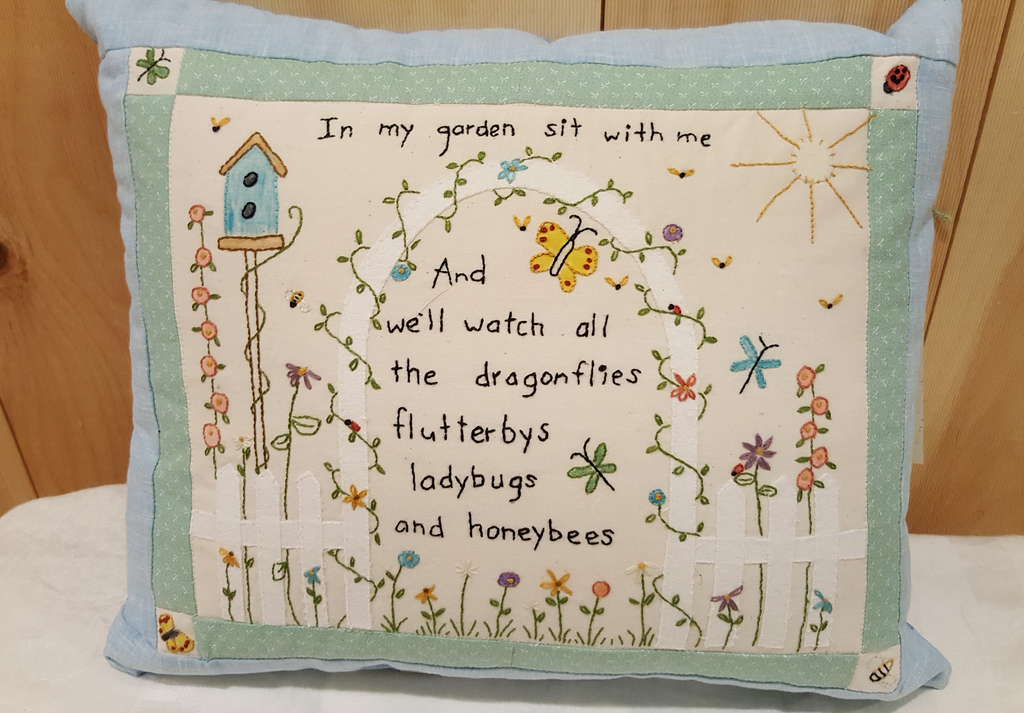 In my garden sit with me
And
we'll watch all
the dragonflies
flutterbys
ladybugs
and honeybees